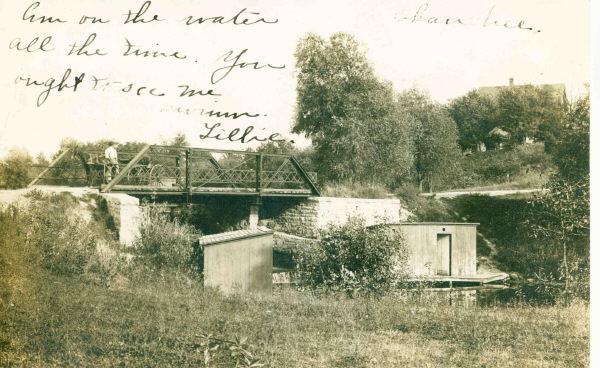 Am on the water
all the time. You
ought to see me
swim.
Lillie.